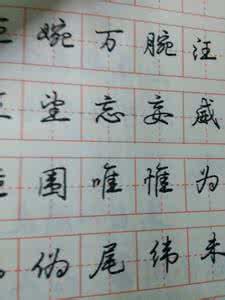 婉万腕汪
望忘妄威
围唯惟为
伪尾纬未